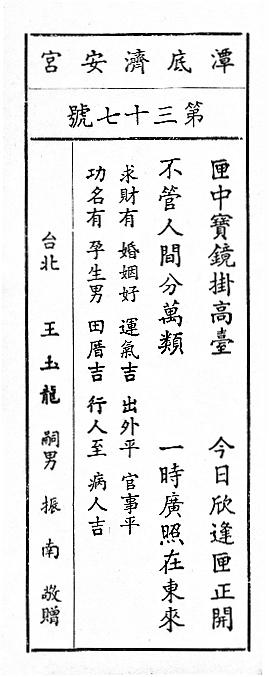 潭底濟安宮
第三十七號
匣中寶鏡掛高臺　今日欣逢匣正開
不管人間分萬類　一時廣照在東來
求財有　婚姻好　運氣吉　出外平　官事平
功名有　孕生男　田厝吉　行人至　病人吉
台北　王玉龍　嗣男　振南　敬贈